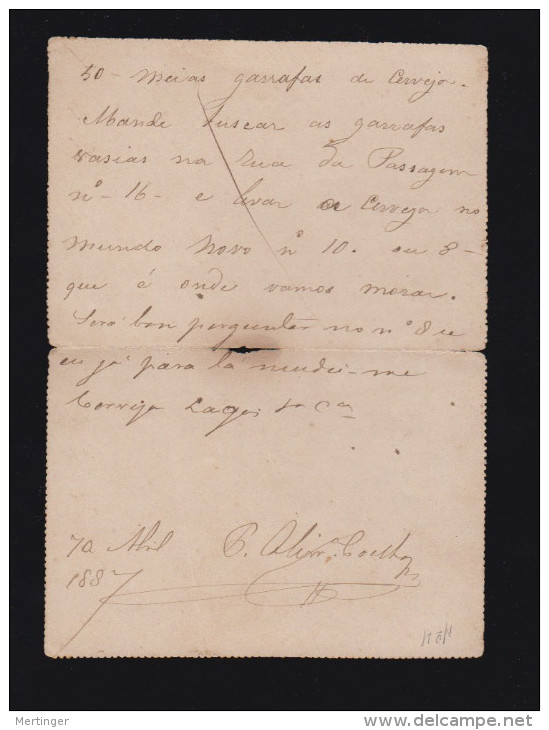 50 - meias garrafas de Cerveja.
Mande buscar as garrafas
vasias na Rua da Passagem
nº - 16 - e levar a Cerveja no
mundo novo nº 10. ou 8 -
que é onde vamos morar.
Será bon perguntar no nº 8 se
eu já para la mudei-me
Cerveja Lagos
Abril
1887
Coelho
Mertinger
http://www.delcampe.net